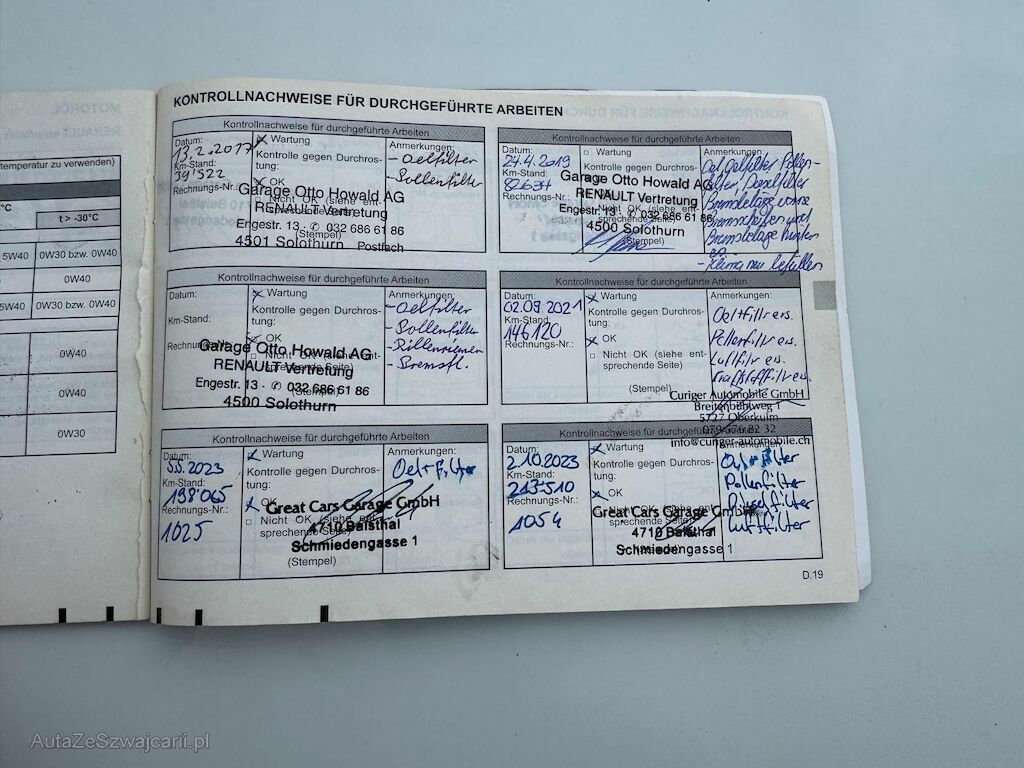 MOTORÖL
temperatur zu verwenden)
°C
t > -30°C
5W40
0W30 bzw. 0W40
0W40
5W40
0W30 bzw. 0W40
0W40
0W40
0W30
KONTROLLNACHWEISE FÜR DURCHGEFÜHRTE ARBEITEN
Kontrollnachweise für durchgeführte Arbeiten
Datum:
13.2.2017
Km-Stand:
39'522
Rechnungs-Nr.:
Wartung
Kontrolle gegen Durchros-
tung:
OK
Nicht OK (siehe ent-
sprechende Seite)
(Stempel)
Garage Otto Howald AG
RENAULT Vertretung
Engestr. 13 · ✆ 032 686 61 86
4501 Solothurn Postfach
Anmerkungen:
- Oelfilter
- Pollenfilter
Kontrollnachweise für durchgeführte Arbeiten
Datum:
24.4.2019
Km-Stand:
82634
Rechnungs-Nr.:
Wartung
Kontrolle gegen Durchros-
tung:
OK
Nicht OK (siehe ent-
sprechende Seite)
(Stempel)
Garage Otto Howald AG
RENAULT Vertretung
Engestr. 13 · ✆ 032 686 61 86
4500 Solothurn
Anmerkungen:
Oel, Oelfilter, Pollen-
filter, Dieselfilter
Bremsbeläge vorne
Bremsscheiben und
Bremsbeläge hinten
- Klima neu befüllen
Kontrollnachweise für durchgeführte Arbeiten
Datum:
Km-Stand:
Rechnungs-Nr.:
Wartung
Kontrolle gegen Durchros-
tung:
OK
Nicht OK (siehe ent-
sprechende Seite)
Garage Otto Howald AG
RENAULT Vertretung
Engestr. 13 · ✆ 032 686 61 86
4500 Solothurn
Anmerkungen:
- Oelfilter
- Pollenfilter
- Rillenriemen
- Bremsfl.
Kontrollnachweise für durchgeführte Arbeiten
Datum:
02.09.2021
Km-Stand:
146120
Rechnungs-Nr.:
Wartung
Kontrolle gegen Durchros-
tung:
OK
Nicht OK (siehe ent-
sprechende Seite)
(Stempel)
Anmerkungen:
Oelfilter ers.
Pollenfilter ers.
Luftfilter ers.
Kraftstofffilter ers.
Curiger Automobile GmbH
Breitenbühlweg 1
5727 Oberkulm
079 576 82 32
info@curiger-automobile.ch
Kontrollnachweise für durchgeführte Arbeiten
Datum:
5.5.2023
Km-Stand:
198'065
Rechnungs-Nr.:
1025
Wartung
Kontrolle gegen Durchros-
tung:
OK
Nicht OK (siehe ent-
sprechende Seite)
(Stempel)
Great Cars Garage GmbH
4710 Balsthal
Schmiedengasse 1
Anmerkungen:
Oel + Filter
Kontrollnachweise für durchgeführte Arbeiten
Datum:
2.10.2023
Km-Stand:
213'510
Rechnungs-Nr.:
1054
Wartung
Kontrolle gegen Durchros-
tung:
OK
Nicht OK (siehe ent-
sprechende Seite)
Great Cars Garage GmbH
4710 Balsthal
Schmiedengasse 1
Anmerkungen:
Oel + Filter
Pollenfilter
Dieselfilter
Luftfilter
D.19
AutaZeSzwajcarii.pl